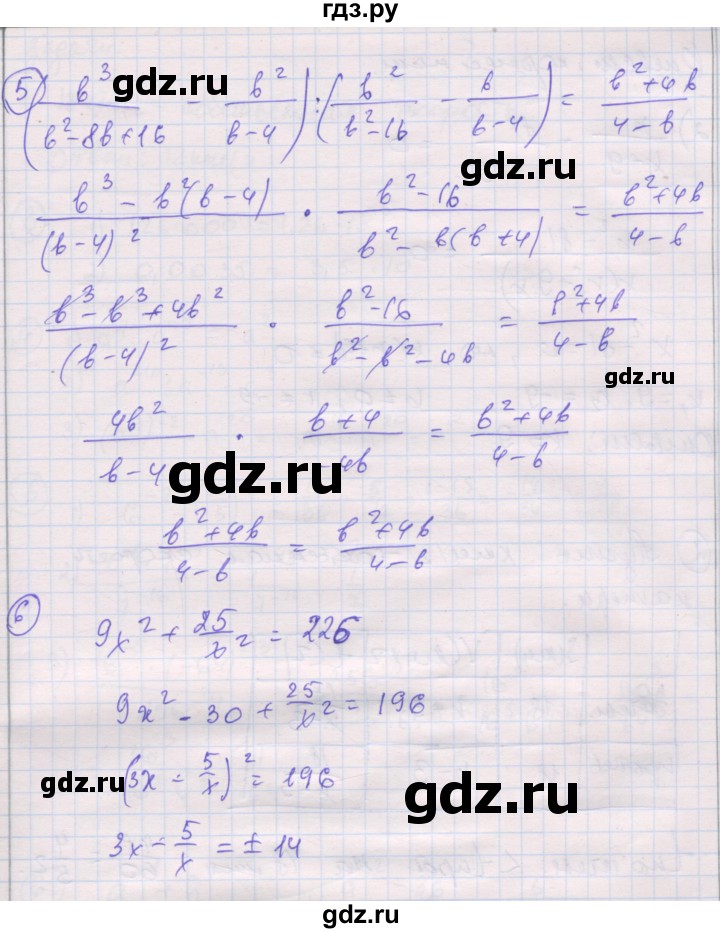 гдз.ру
5) (b³/(b²-8b+16) - b²/(b-4)) : (b²/(b²-16) - b/(b-4)) = (b²+4b)/(4-b)
gdz.ru
(b³ - b²(b-4))/(b-4)² · (b²-16)/(b² - b(b+4)) = (b²+4b)/(4-b)
gdz.ru
(b³-b³+4b²)/(b-4)² · (b²-16)/(b²-b²-4b) = (b²+4b)/(4-b)
gdz.ru
4b²/(b-4) · (b+4)/4b = (b²+4b)/(4-b)
gdz.ru
(b²+4b)/(4-b) = (b²+4b)/(4-b)
gdz.ru
6) 9x² + 25/x² = 226
9x² - 30 + 25/x² = 196
(3x - 5/x)² = 196
gdz.ru
gdz.ru
3x - 5/x = ±14
gdz.ru